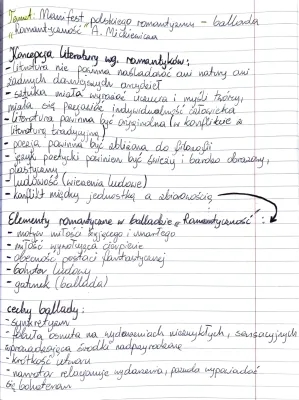 Temat: Manifest polskiego romantyzmu - ballada
„Romantyczność" A. Mickiewicza
Koncepcja literatury wg. romantyków:
- literatura nie powinna naśladować ani natury ani
żadnych dawniejszych arcydzieł
- sztuka miała wyrażać uczucia i myśli twórcy,
miała się przejawiać indywidualność człowieka
- literatura powinna być oryginalna (w konflikcie z
literaturą tradycyjną)
- poezja powinna być zbliżona do filozofii
- język poetycki powinien być świeży i bardzo obrazowy,
plastyczny
- ludowość (wierzenia ludowe)
- konflikt między jednostką a zbiorowością
Elementy romantyczne w balladzie „Romantyczność":
- motyw miłości żyjącego i umarłego
- miłość wywołująca cierpienie
- obecność postaci fantastycznej
- bohater ludowy
- gatunek (ballada)
cechy ballady:
- synkretyzm
- fabuła osnuta na wydarzeniach niezwykłych, sensacyjnych
wprowadzająca środki nadprzyrodzone
- krótkość utworu
- narrator relacjonuje wydarzenia, pozwala wypowiadać
się bohaterom